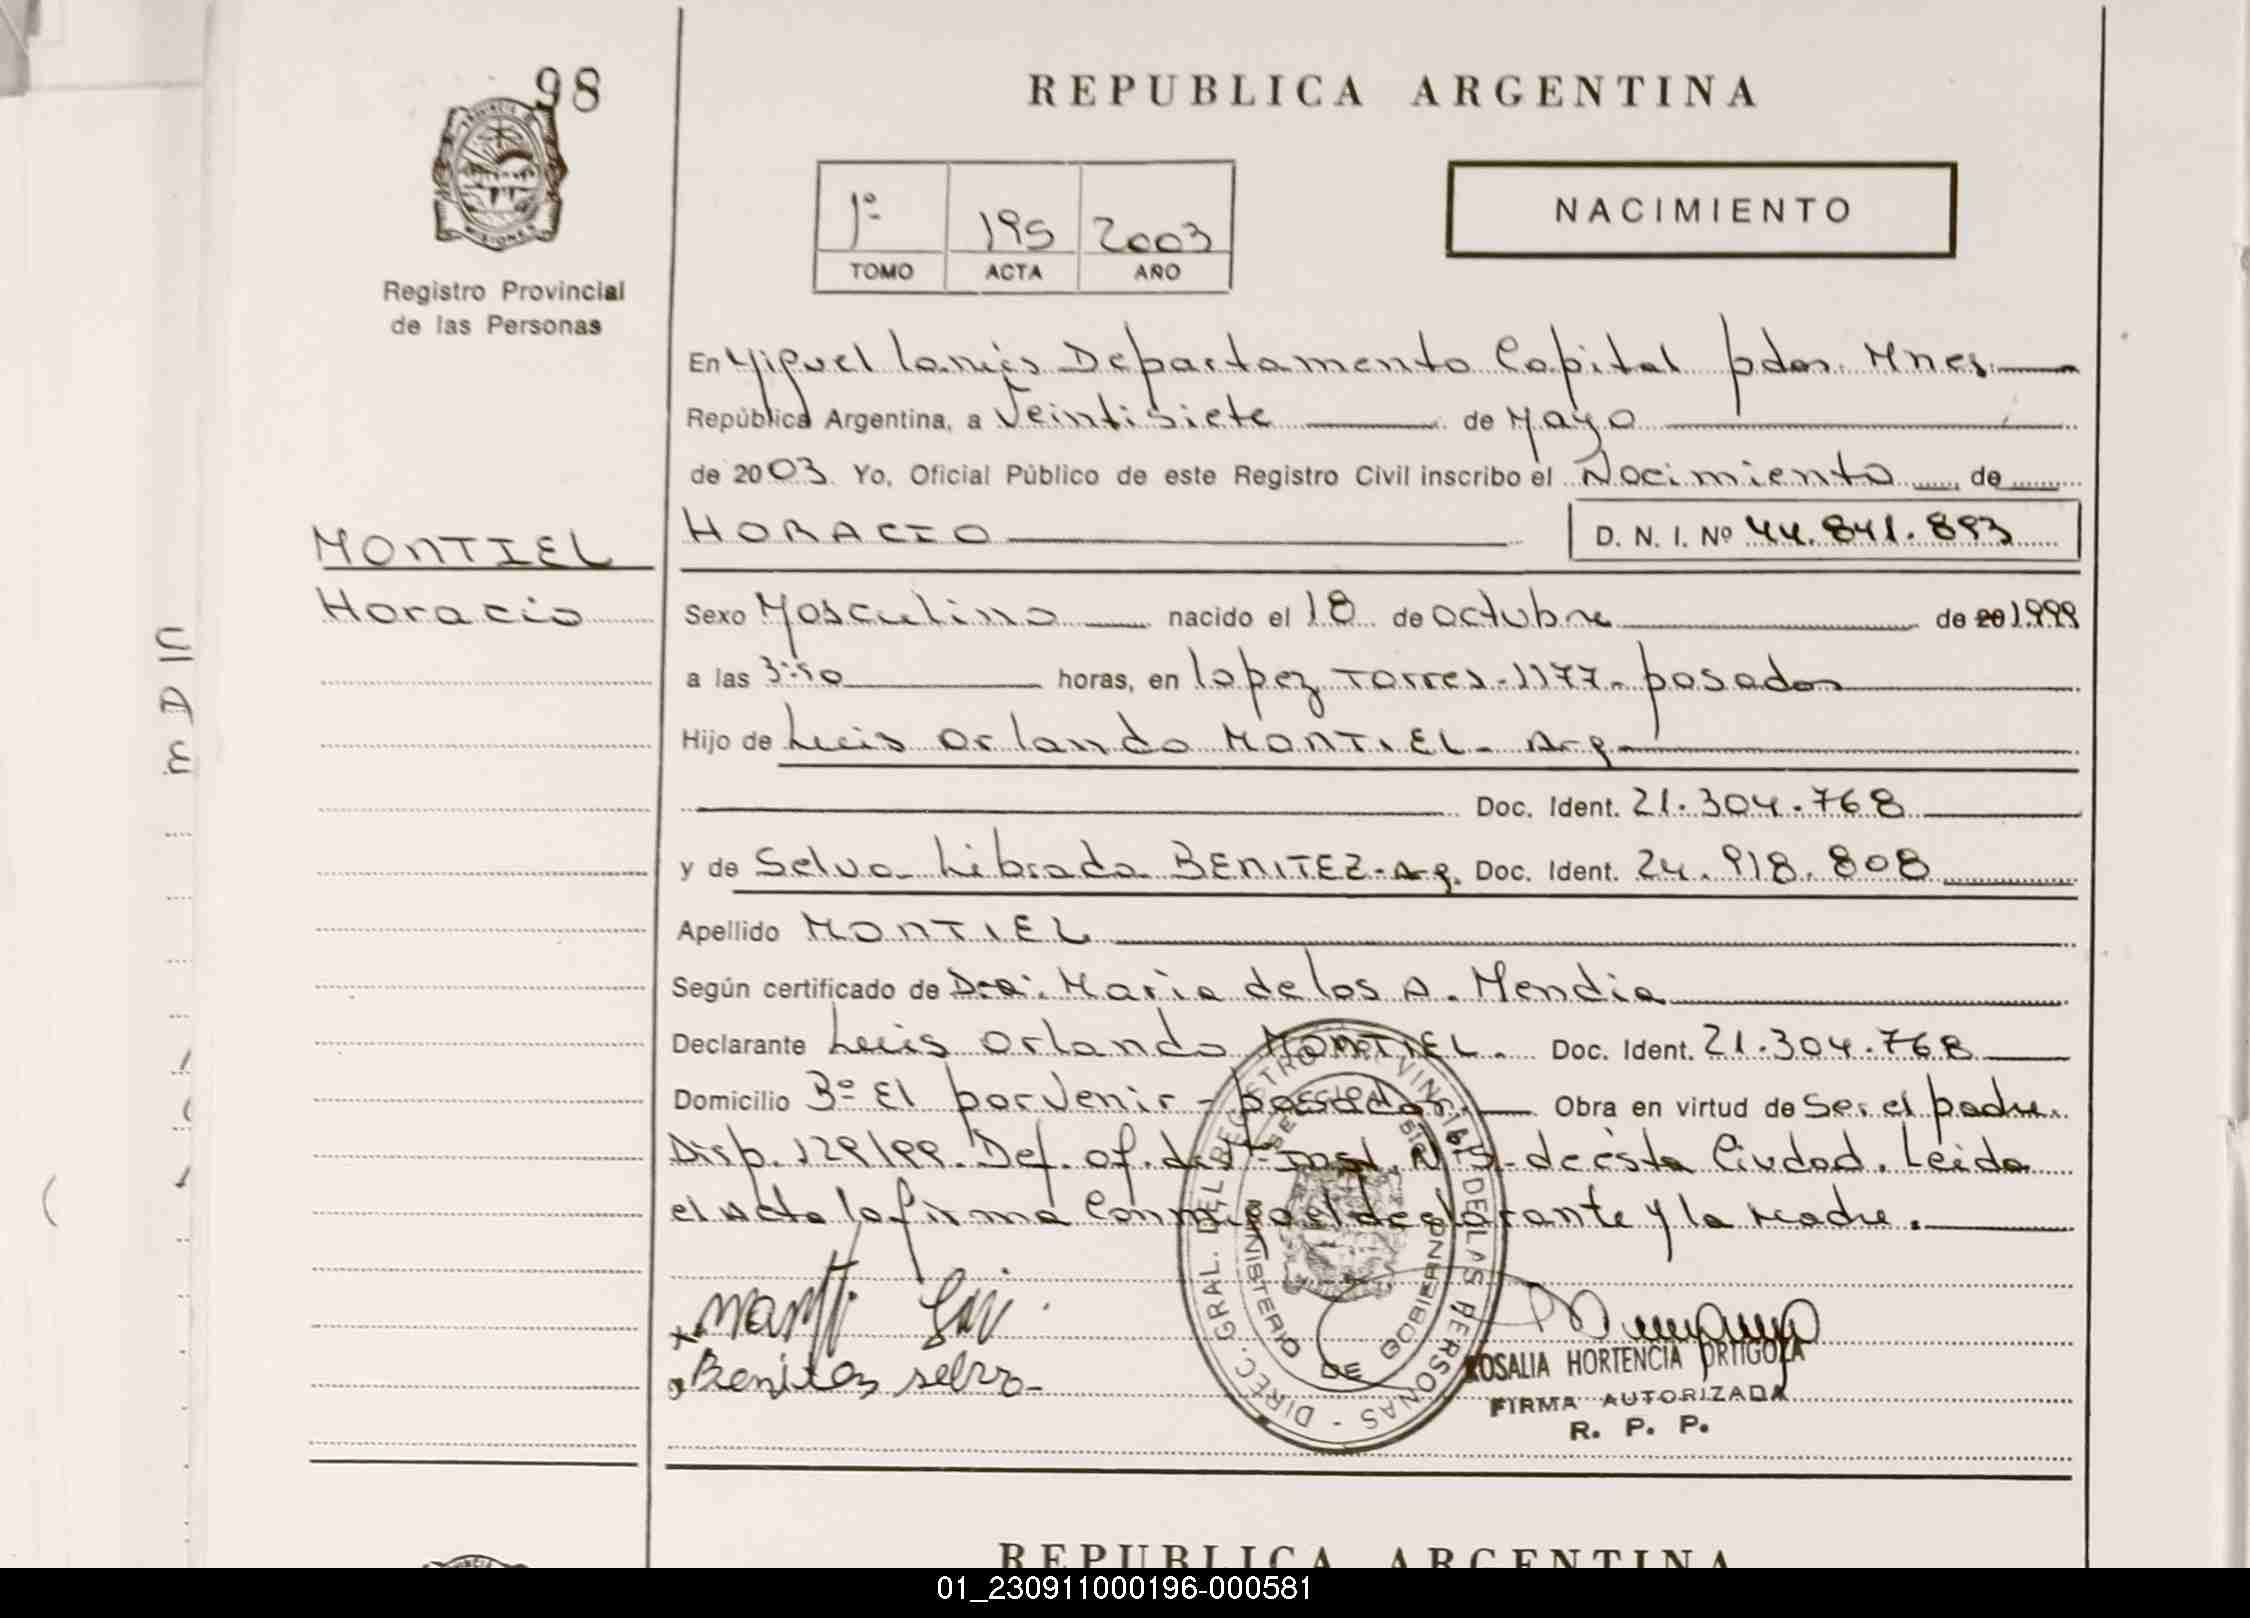 98
REPUBLICA ARGENTINA
1º 195 2003
TOMO ACTA AÑO
NACIMIENTO
Registro Provincial
de las Personas
En Miguel Lanús Departamento Capital pdas. Mnes.
República Argentina, a Veintisiete de Mayo
de 2003 Yo, Oficial Público de este Registro Civil inscribo el Nacimiento de
MONTIEL
Horacio
HORACIO
D. N. I. Nº 44.841.893
Sexo Masculino nacido el 18 de octubre de 20 1.999
a las 3:50 horas, en Lopez Torres-1177- posadas
Hijo de Luis Orlando MONTIEL- Arg
Doc. Ident. 21.304.768
y de Selva Librada BENITEZ- Arg. Doc. Ident. 24.918.808
Apellido MONTIEL
Según certificado de Dra: Maria de los A. Mendia
Declarante Luis Orlando MONTIEL. Doc. Ident. 21.304.768
Domicilio Bº El porvenir - posadas. Obra en virtud de Ser el padre.
Disp. 129/99. Def. of. de Inst. Nº de ésta Ciudad. Leida
el Acta la firma Conmigo el declarante y la madre.
Benitez selva
DIREC. GRAL. DEL REGISTRO PROVINCIAL DE LAS PERSONAS
MINISTERIO DE GOBIERNO
ROSALIA HORTENCIA ORTIGOZA
FIRMA AUTORIZADA
R. P. P.
REPUBLICA ARGENTINA
01_230911000196-000581